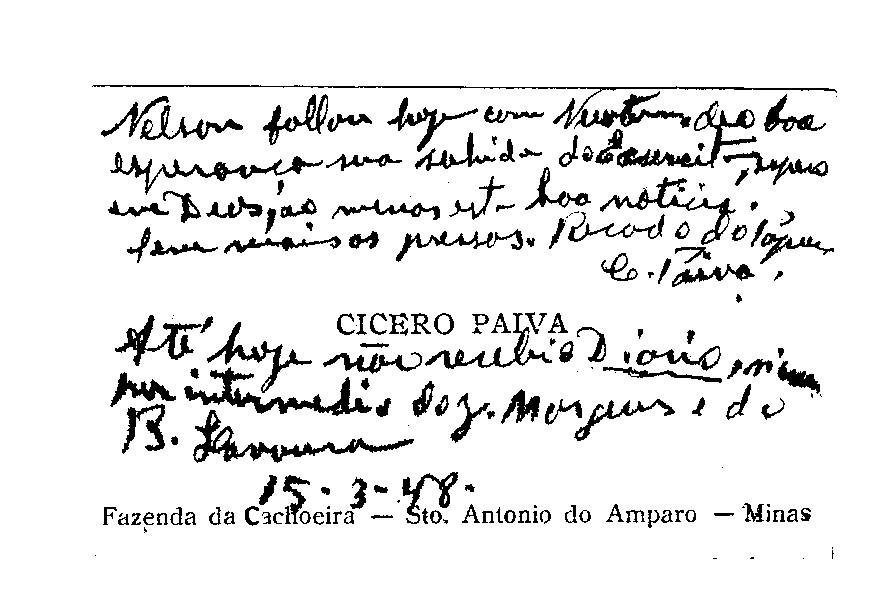 Nelson fallou hoje com Newton, deo boa
esperança sua sahida do Exercito, espero
em Deus, ao menos esta boa noticia.
mais os pressos. Recado do
C. Paiva.
CICERO PAIVA
Até hoje não recebi o Diario,
por intermedio do J. Marques e do
B. Lavoura
15-3-48.
Fazenda da Cachoeira — Sto. Antonio do Amparo — Minas